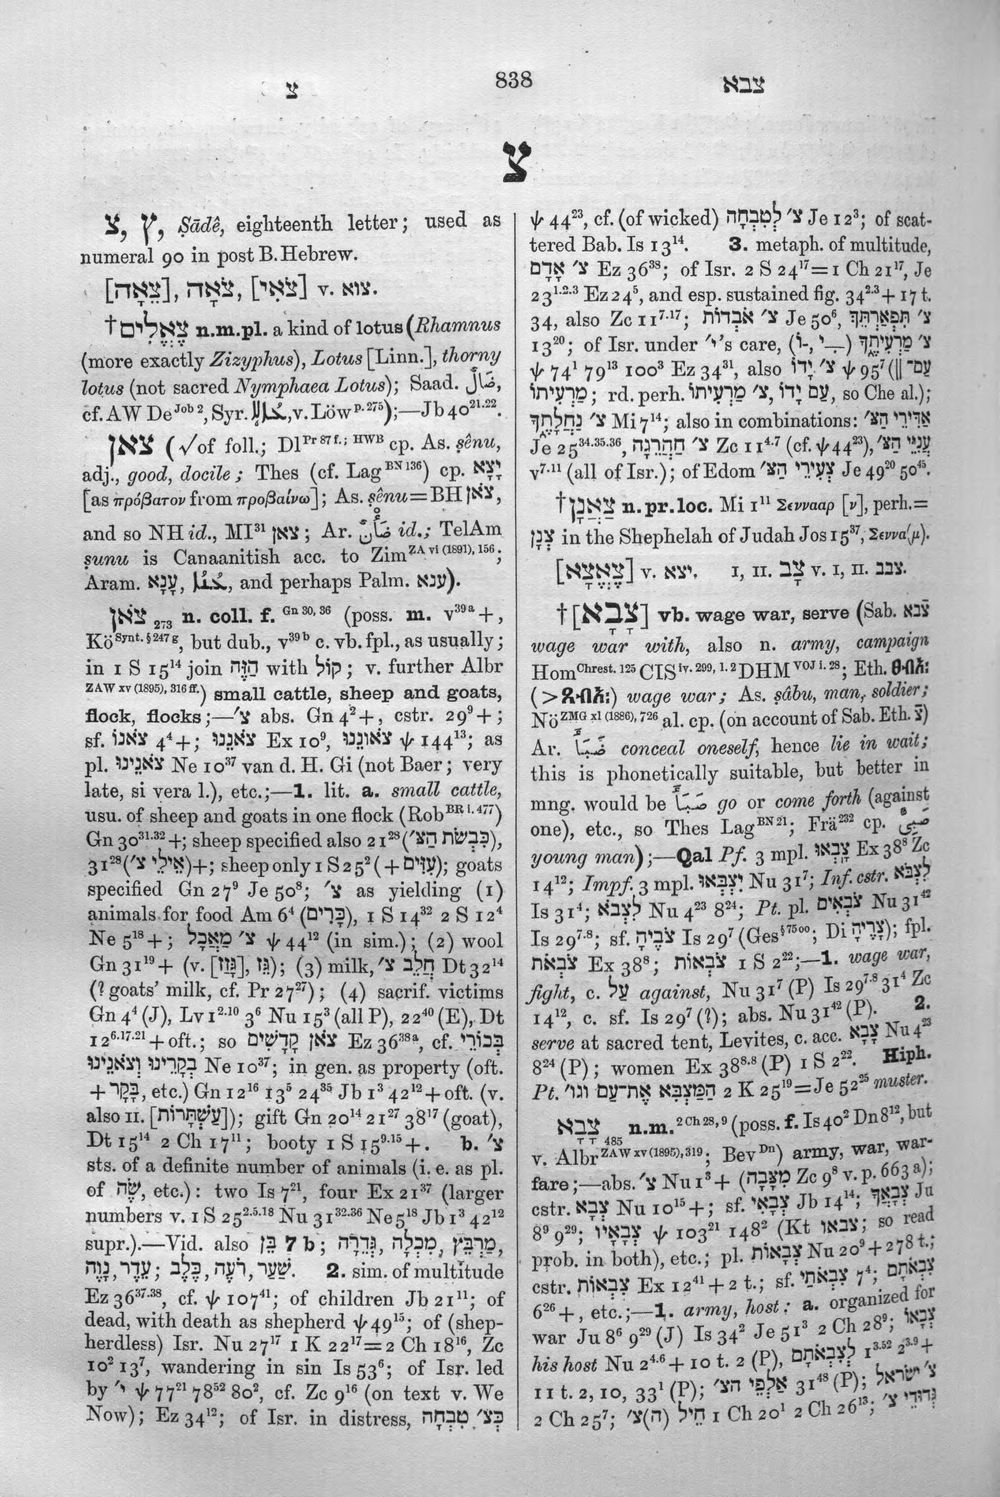 צ
838
צבא
צ
צ, ץ, Ṣādê, eighteenth letter; used as
numeral 90 in post B. Hebrew.
[צֵאָה], צֹאָה, [צֹאִי] v. צוא.
†צֶאֱלִים n.m.pl. a kind of lotus (Rhamnus
(more exactly Zizyphus), Lotus [Linn.], thorny
lotus (not sacred Nymphaea Lotus); Saad. ضَالٌ,
cf. AW De Job 2, Syr. v. Löw p. 275);—Jb 40²¹·²².
צאן (√of foll.; Dl Pr 87 f.; HWB cp. As. ṣênu,
adj., good, docile; Thes (cf. Lag BN 136) cp. יָצָא
[as πρόβατον from προβαίνω]; As. ṣênu = BH צֹאן,
and so NH id., MI³¹ צאן; Ar. ضَأْنٌ id.; TelAm
ṣunu is Canaanitish acc. to Zim ZA vi (1891), 156;
Aram. עָנָא, and perhaps Palm. ענא).
צֹאן 273 n. coll. f. Gn 30, 36 (poss. m. v³⁹ᵃ +,
Kö Synt. § 247 g, but dub., v³⁹ᵇ c. vb. fpl., as usually;
in 1 S 15¹⁴ join הַזֶּה with קוֹל; v. further Albr
ZAW xv (1895), 316 ff.) small cattle, sheep and goats,
flock, flocks;—צ׳ abs. Gn 4² +, cstr. 29⁹ +;
sf. צֹאנוֹ 4⁴ +; צֹאנֵנוּ Ex 10⁹, צֹאונֵנוּ ψ 144¹³; as
pl. צֹאנֵינוּ Ne 10³⁷ van d. H. Gi (not Baer; very
late, si vera l.), etc.;—1. lit. a. small cattle,
usu. of sheep and goats in one flock (Rob BR i. 477)
Gn 30³¹·³² +; sheep specified also 21²⁸ (כִּבְשֹׂת הַצּ׳),
31²⁸ (אֵילֵי צ׳) +; sheep only 1 S 25² (+ עִזִּים); goats
specified Gn 27⁹ Je 50⁸; צ׳ as yielding (1)
animals for food Am 6⁴ (כָּרִים), 1 S 14³² 2 S 12⁴
Ne 5¹⁸ +; צ׳ מַאֲכָל ψ 44¹² (in sim.); (2) wool
Gn 31¹⁹ + (v. [גָּזַז], גֵּז); (3) milk, חֲלֵב צ׳ Dt 32¹⁴
(? goats' milk, cf. Pr 27²⁷); (4) sacrif. victims
Gn 4⁴ (J), Lv 1²·¹⁰ 3⁶ Nu 15³ (all P), 22⁴⁰ (E), Dt
12⁶·¹⁷·²¹ + oft.; so צֹאן קָדָשִׁים Ez 36³⁸ᵃ, cf. בְּכוֹרֵי
בְקָרֵינוּ וְצֹאנֵינוּ Ne 10³⁷; in gen. as property (oft.
+ בָּקָר, etc.) Gn 12¹⁶ 13⁵ 24³⁵ Jb 1³ 42¹² + oft. (v.
also II. [עַשְׁתָּרוֹת]); gift Gn 20¹⁴ 21²⁷ 38¹⁷ (goat),
Dt 15¹⁴ 2 Ch 17¹¹; booty 1 S 15⁹·¹⁵ +. b. צ׳
sts. of a definite number of animals (i. e. as pl.
of שֶׂה, etc.): two Is 7²¹, four Ex 21³⁷ (larger
numbers v. 1 S 25²·⁵·¹⁸ Nu 31³²·³⁶ Ne 5¹⁸ Jb 1³ 42¹²
supr.).—Vid. also בֵּן 7 b; גְּדֵרָה, מִכְלָה, מַרְבֵּץ,
נָוֶה, עֵדֶר; כֶּלֶב, רֹעֶה, שַׁעַר. 2. sim. of multitude
Ez 36³⁷·³⁸, cf. ψ 107⁴¹; of children Jb 21¹¹; of
dead, with death as shepherd ψ 49¹⁵; of (shep-
herdless) Isr. Nu 27¹⁷ 1 K 22¹⁷ = 2 Ch 18¹⁶, Zc
10² 13⁷, wandering in sin Is 53⁶; of Isr. led
by י׳ ψ 77²¹ 78⁵² 80², cf. Zc 9¹⁶ (on text v. We
Now); Ez 34¹²; of Isr. in distress, כְּצ׳ טִבְחָה
ψ 44²³, cf. (of wicked) צ׳ לְטִבְחָה Je 12³; of scat-
tered Bab. Is 13¹⁴. 3. metaph. of multitude,
צ׳ אָדָם Ez 36³⁸; of Isr. 2 S 24¹⁷ = 1 Ch 21¹⁷, Je
23¹·²·³ Ez 24⁵, and esp. sustained fig. 34²·³ + 17 t.
34, also Zc 11⁷·¹⁷; צ׳ אֹבְדוֹת Je 50⁶, צ׳ תִּפְאַרְתֵּךְ
13²⁰; of Isr. under י׳'s care, צ׳ מַרְעִיתֶךָ
ψ 74¹ 79¹³ 100³ Ez 34³¹, also צ׳ יָדוֹ ψ 95⁷ (‖ עַם־
מַרְעִיתוֹ; rd. perh. עַם יָדוֹ, צ׳ מַרְעִיתוֹ, so Che al.);
צ׳ נַחֲלָתֶךָ Mi 7¹⁴; also in combinations: אַדִּירֵי הַצּ׳
Je 25³⁴·³⁵·³⁶, צ׳ הַהֲרֵגָה Zc 11⁴·⁷ (cf. ψ 44²³), עֲנִיֵּי הַצּ׳
v⁷·¹¹ (all of Isr.); of Edom צְעִירֵי הַצּ׳ Je 49²⁰ 50⁴⁵.
†צַאֲנָן n.pr.loc. Mi 1¹¹ Σεννααρ [ν], perh. =
צְנָן in the Shephelah of Judah Jos 15³⁷, Σεννα(μ).
[צֶאֱצָא] v. יצא. I, II. צָב v. I, II. צבב.
†[צָבָא] vb. wage war, serve (Sab. צבא
wage war with, also n. army, campaign
Hom Chrest. 125 CIS iv. 299, l. 2 DHM VOJ i. 28; Eth. ፀብአ:
(> ጸብአ:) wage war; As. ṣâbu, man, soldier;
Nö ZMG xl (1886), 726 al. cp. (on account of Sab. Eth.)
Ar. ضَبَأَ conceal oneself, hence lie in wait;
this is phonetically suitable, but better in
mng. would be صَبَأَ go or come forth (against
one), etc., so Thes Lag BN 21; Frä 232 cp. صَبِىّ
young man);—Qal Pf. 3 mpl. צָבְאוּ Ex 38⁸ Zc
14¹²; Impf. 3 mpl. יִצְבְּאוּ Nu 31⁷; Inf. cstr. לִצְבֹּא
Is 31⁴; לִצְבֹא Nu 4²³ 8²⁴; Pt. pl. צֹבְאִים Nu 31⁴²
Is 29⁷·⁸; sf. צֹבֶיהָ Is 29⁷ (Ges § 75 oo; Di צָרֶיהָ); fpl.
צֹבְאֹת Ex 38⁸; צֹבְאוֹת 1 S 2²²;—1. wage war,
fight, c. עַל against, Nu 31⁷ (P) Is 29⁷·⁸ 31⁴ Zc
14¹², c. sf. Is 29⁷ (?); abs. Nu 31⁴² (P). 2.
serve at sacred tent, Levites, c. acc. צָבָא Nu 4²³
8²⁴ (P); women Ex 38⁸·⁸ (P) 1 S 2²². Hiph.
Pt. הַמַּצְבִּא אֶת־עַם וגו׳ 2 K 25¹⁹ = Je 52²⁵ muster.
צָבָא 485 n.m. 2 Ch 28, 9 (poss. f. Is 40² Dn 8¹², but
v. Albr ZAW xv (1895), 319; Bev Dn) army, war, war-
fare;—abs. צ׳ Nu 1³ + (מַצָּבָה Zc 9⁸ v. p. 663 a);
cstr. צְבָא Nu 10¹⁵ +; sf. צְבָאִי Jb 14¹⁴; צְבָאֲךָ Ju
8⁹ 9²⁹; צְבָאָיו ψ 103²¹ 148² (Kt צבאו; so read
prob. in both), etc.; pl. צְבָאוֹת Nu 20⁹ + 278 t.;
cstr. צִבְאוֹת Ex 12⁴¹ + 2 t.; sf. צִבְאֹתַי 7⁴; צִבְאֹתָם
6²⁶ +, etc.;—1. army, host: a. organized for
war Ju 8⁶ 9²⁹ (J) Is 34² Je 51³ 2 Ch 28⁹; צְבָאוֹ
his host Nu 2⁴·⁶ + 10 t. 2 (P), לְצִבְאֹתָם 1³·⁵² 2³·⁹ +
11 t. 2, 10, 33¹ (P); אַלְפֵי הַצּ׳ 31⁴⁸ (P); צ׳ יִשְׂרָאֵל
2 Ch 25⁷; חֵיל (ה)צ׳ 1 Ch 20¹ 2 Ch 26¹³; גְּדוּדֵי צ׳